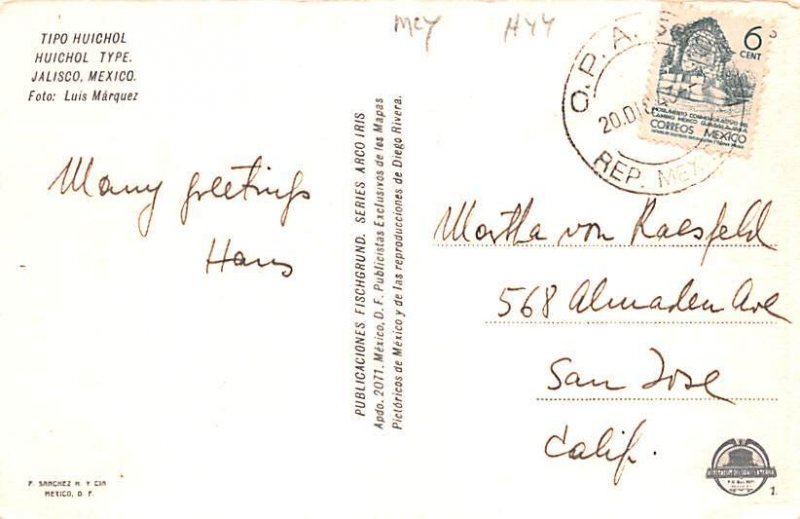 TIPO HUICHOL
HUICHOL TYPE.
JALISCO, MEXICO.
Foto: Luis Márquez
Many greetings
Hans
F. SANCHEZ H. Y CIA
MEXICO, D. F.
PUBLICACIONES FISCHGRUND. SERIES ARCO IRIS
Apdo. 2071. México, D. F. Publicistas Exclusivos de los Mapas
Pictóricos de México y de las reproducciones de Diego Rivera.
O. P. A.
20.DIC
REP. MEX
6
CENT
MONUMENTO CONMEMORATIVO DEL
CAMINO MEXICO GUADALAJARA
CORREOS MEXICO
Martha von Raesfeld
568 Almaden Ave
San Jose
Calif.
1.